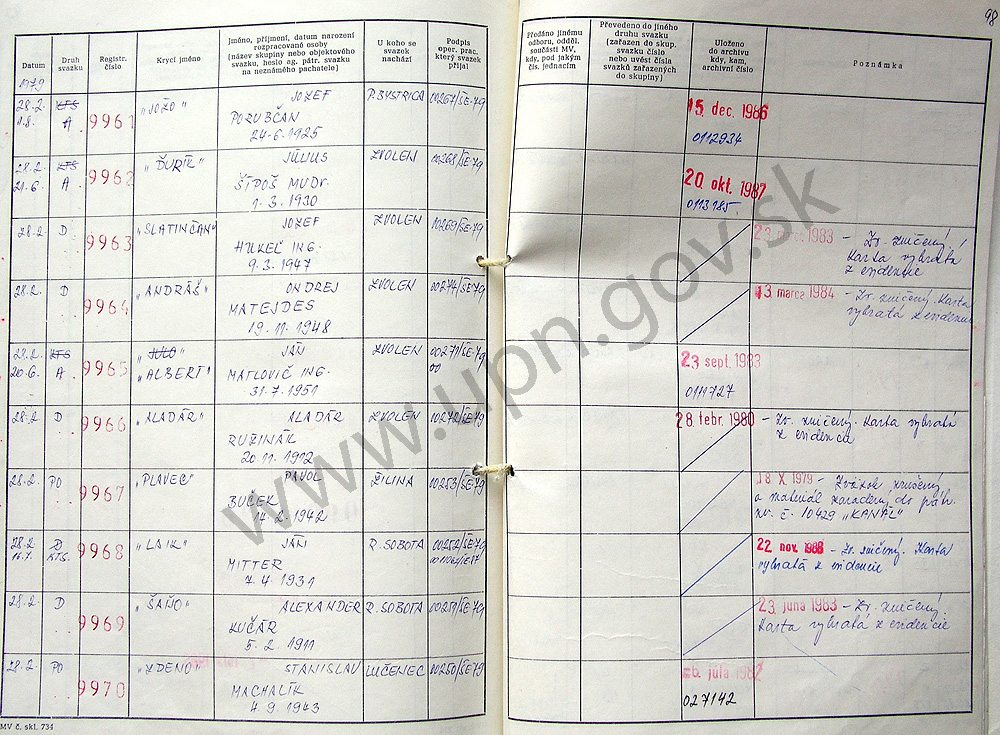 98
Datum
Druh svazku
Registr. číslo
Krycí jméno
Jméno, příjmení, datum narození
rozpracované osoby
(název skupiny nebo objektového
svazku, heslo ag. pátr. svazku
na neznámého pachatele)
U koho se
svazek
nachází
Podpis
oper. prac.
který svazek
přijal
Předáno jinému
odboru, odděl.
součásti MV,
kdy, pod jakým
čís. jednacím
Převedeno do jiného
druhu svazku
(zařazen do skup.
svazku číslo
nebo uvést čísla
svazků zařazených
do skupiny)
Uloženo
do archivu
kdy, kam,
archivní číslo
Poznámka
1979
28.2. KTS 9961 „JOŽO" JOZEF P. BYSTRICA 00267/ŠE-79 15. dec. 1986
1.8. A PORUBČAN 0112934
24.6.1925
28.2. KTS 9962 „ĎURÍK" JÚLIUS ZVOLEN 00268/ŠE-79 20. okt. 1987
21.6. A ŠÍPOŠ MUDr. 0113185.
1.3.1930
28.2. D 9963 „SLATINČAN" JOZEF ZVOLEN 00269/ŠE-79 1983 – Zv. zničený.
HUKEĽ ING. Karta vybratá
9.3.1947 z evidencie
28.2. D 9964 „ANDRÁŠ" ONDREJ ZVOLEN 00274/ŠE-79 13 marca 1984 – Zv. zničený. Karta
MATEJDES vybratá z evidencie
19.11.1948
28.2. KTS 9965 „JULO" JÁN ZVOLEN 00271/ŠE-79 23 sept. 1983
20.6. A „ALBERT" MATLOVIČ ING. 0111727
31.7.1951
28.2 D 9966 „ALADÁR" ALADÁR ZVOLEN 00272/ŠE-79 28. febr. 1980 – Zv. zničený. Karta vybratá
RUŽINÁK z evidencie
20.11.1912
28.2. PO 9967 „PLAVEC" PAVOL ŽILINA 00253/ŠE-79 18 X 1979 – Zväzok zničený
BUČEK a materiál zaradený do pátr.
14.2.1942 zv. č. 10429 „KANÁL"
28.2. D 9968 „LAIK" JÁN R. SOBOTA 00252/ŠE-79 22 nov. 1988 – Zv. zničený. Karta
16.7. KTS. MITTER vybratá z evidencie
7.4.1931
28.2. D 9969 „ŠAŇO" ALEXANDER R. SOBOTA 00251/ŠE-79 23. júna 1983 – Zv. zničený.
KUČÁR Karta vybratá z evidencie
5.2.1911
28.2 PO 9970 „ZDENO" STANISLAV LUČENEC 00250/ŠE-79 6. júla 1982
MACHALÍK 027142
4.9.1943
MV č. skl. 734
www.upn.gov.sk